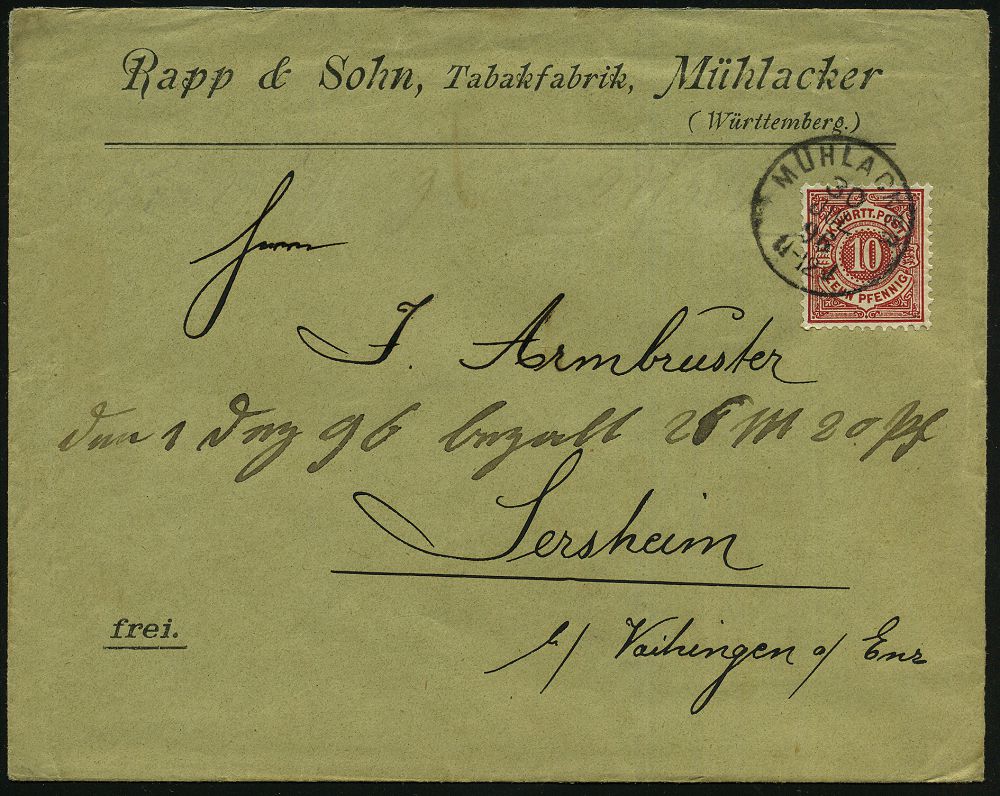 Rapp & Sohn, Tabakfabrik, Mühlacker
(Württemberg.)
MÜHLACKER
30
96
11-12
WÜRTT. POST
10
ZEHN PFENNIG
Herrn
J. Armbruster
den 1 Dez 96 bezalt 26 M 20 Pf
Sersheim
frei.
b/ Vaihingen a/ Enz